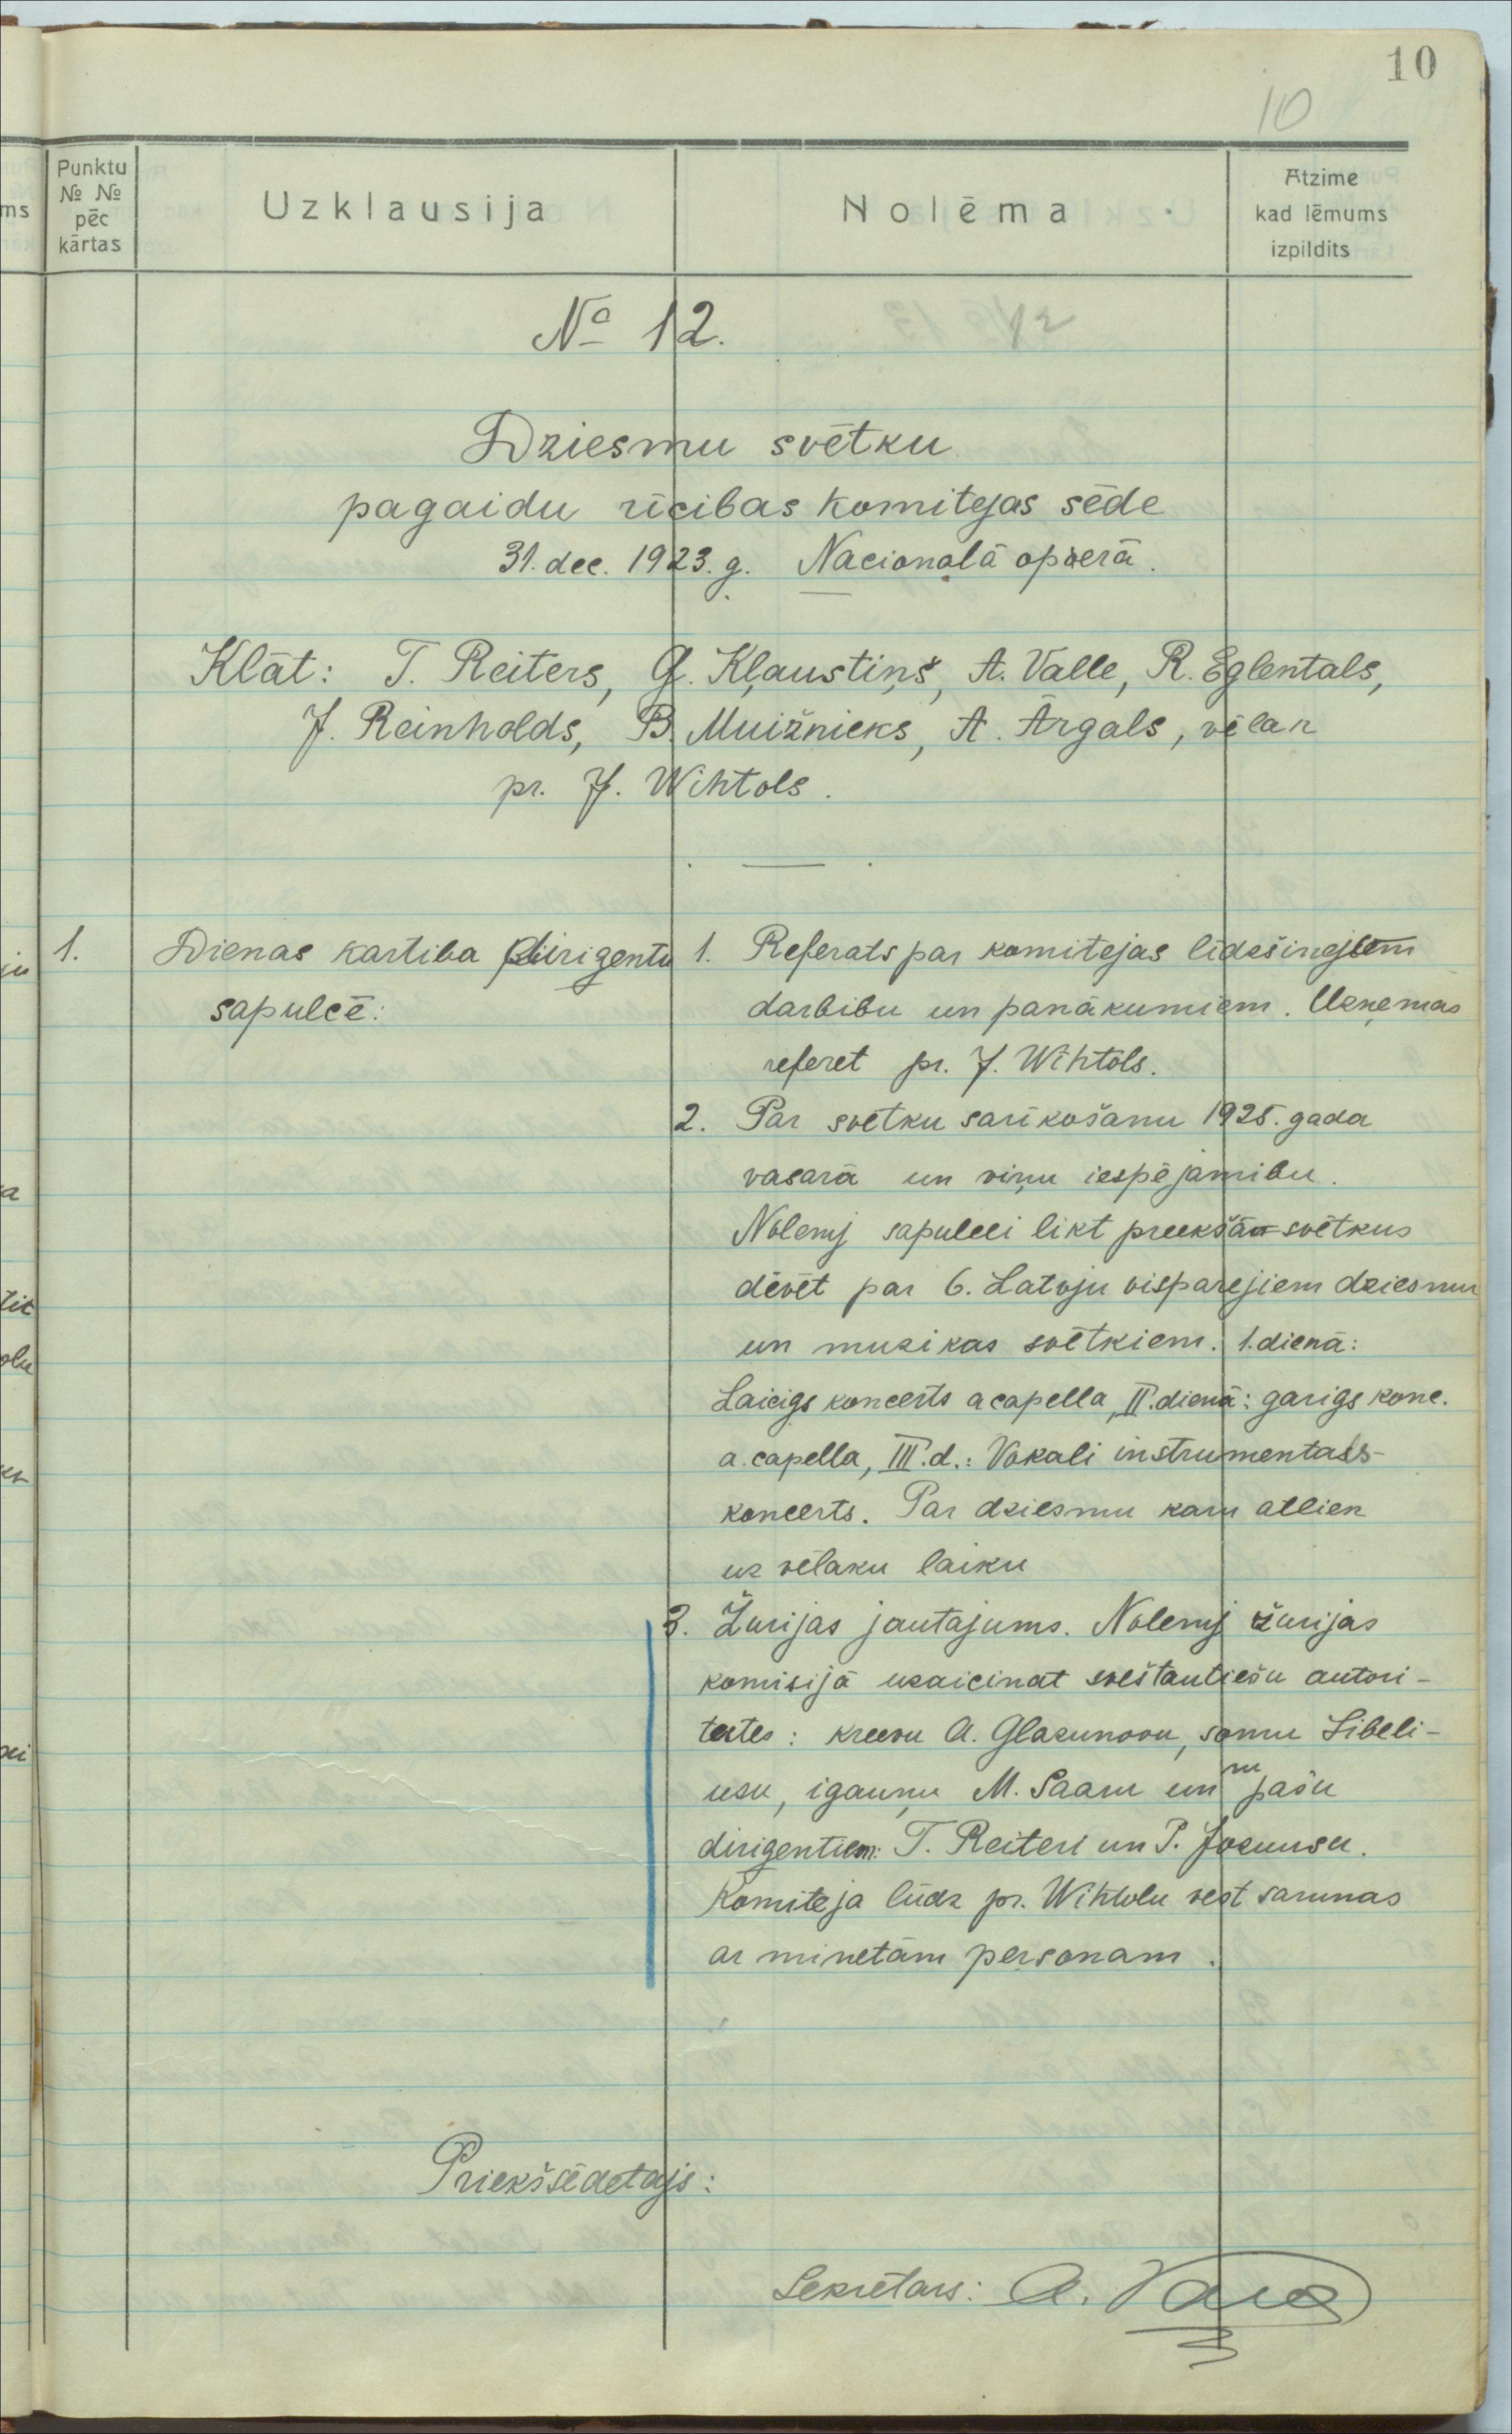 10
10
Punktu
№ №
pēc
kārtas
Uzklausija
Nolēma
Atzime
kad lēmums
izpildits
ms
№ 12.
Dziesmu svētku
pagaidu rīcibas komitejas sēde
31. dec. 1923. g. Nacionalā operā.
Klāt: T. Reiters, G. Kļaustiņš, A. Valle, R. Eglentals,
J. Reinholds, B. Muižnieks, A. Ārgals, vēlak
pr. J. Wihtols.
1. Dienas kartiba dirigentu
sapulcē:
1. Referats par komitejas līdzšinejiem
darbibu un panākumiem. Uzņemas
referet pr. J. Wihtols.
2. Par svētku sarīkošanu 1925. gada
vasarā un viņu iespējamibu.
Nolemj sapulcei likt preekšā svētkus
dēvēt par 6. Latvju visparejiem dziesmu
un muzikas svētkiem. 1. dienā:
Laicigs koncerts a capella, II. dienā: garigs konc.
a. capella, III. d.: Vokali instrumentals
koncerts. Par dziesmu karu atliek
uz vēlaku laiku
3. Žurijas jautajums. Nolemj žurijas
komisijā uzaicinat sveštautiešu autori-
tates: kreevu A. Glazunovu, somu Sibeli-
usu, igauņu M. Saaru un nu pašu
dirigentiem: T. Reiteri un P. Jozuusu.
Komiteja lūdz pr. Wihtolu vest sarunas
ar minetām personam.
Priekšsēdetajs:
Sekretars: A.